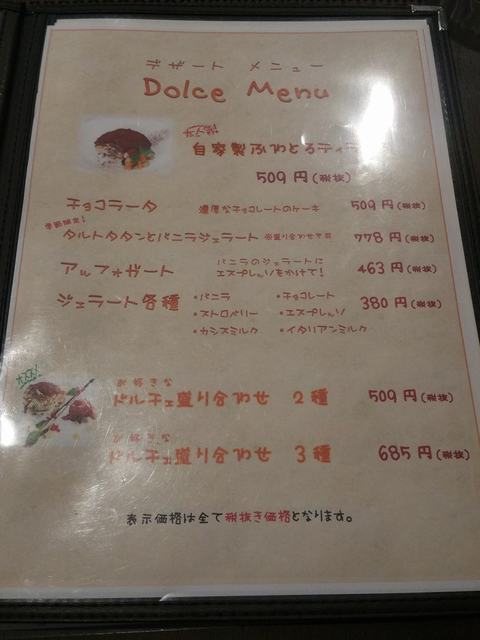 デザート メニュー
Dolce Menu
大人気
自家製ふわとろティラ
509 円(税抜)
チョコラータ 濃厚なチョコレートのケーキ 509 円(税抜)
季節限定!
タルトタタンとバニラジェラート ※盛り合わせ不可 778 円(税抜)
アッフォガート バニラのジェラートに エスプレッソをかけて! 463 円(税抜)
ジェラート各種 ・バニラ ・チョコレート 380 円(税抜)
・ストロベリー ・エスプレッソ
・カシスミルク ・イタリアンミルク
オススメ!
お好きな
ドルチェ盛り合わせ 2種 509 円(税抜)
お好きな
ドルチェ盛り合わせ 3種 685 円(税抜)
表示価格は全て税抜き価格となります。